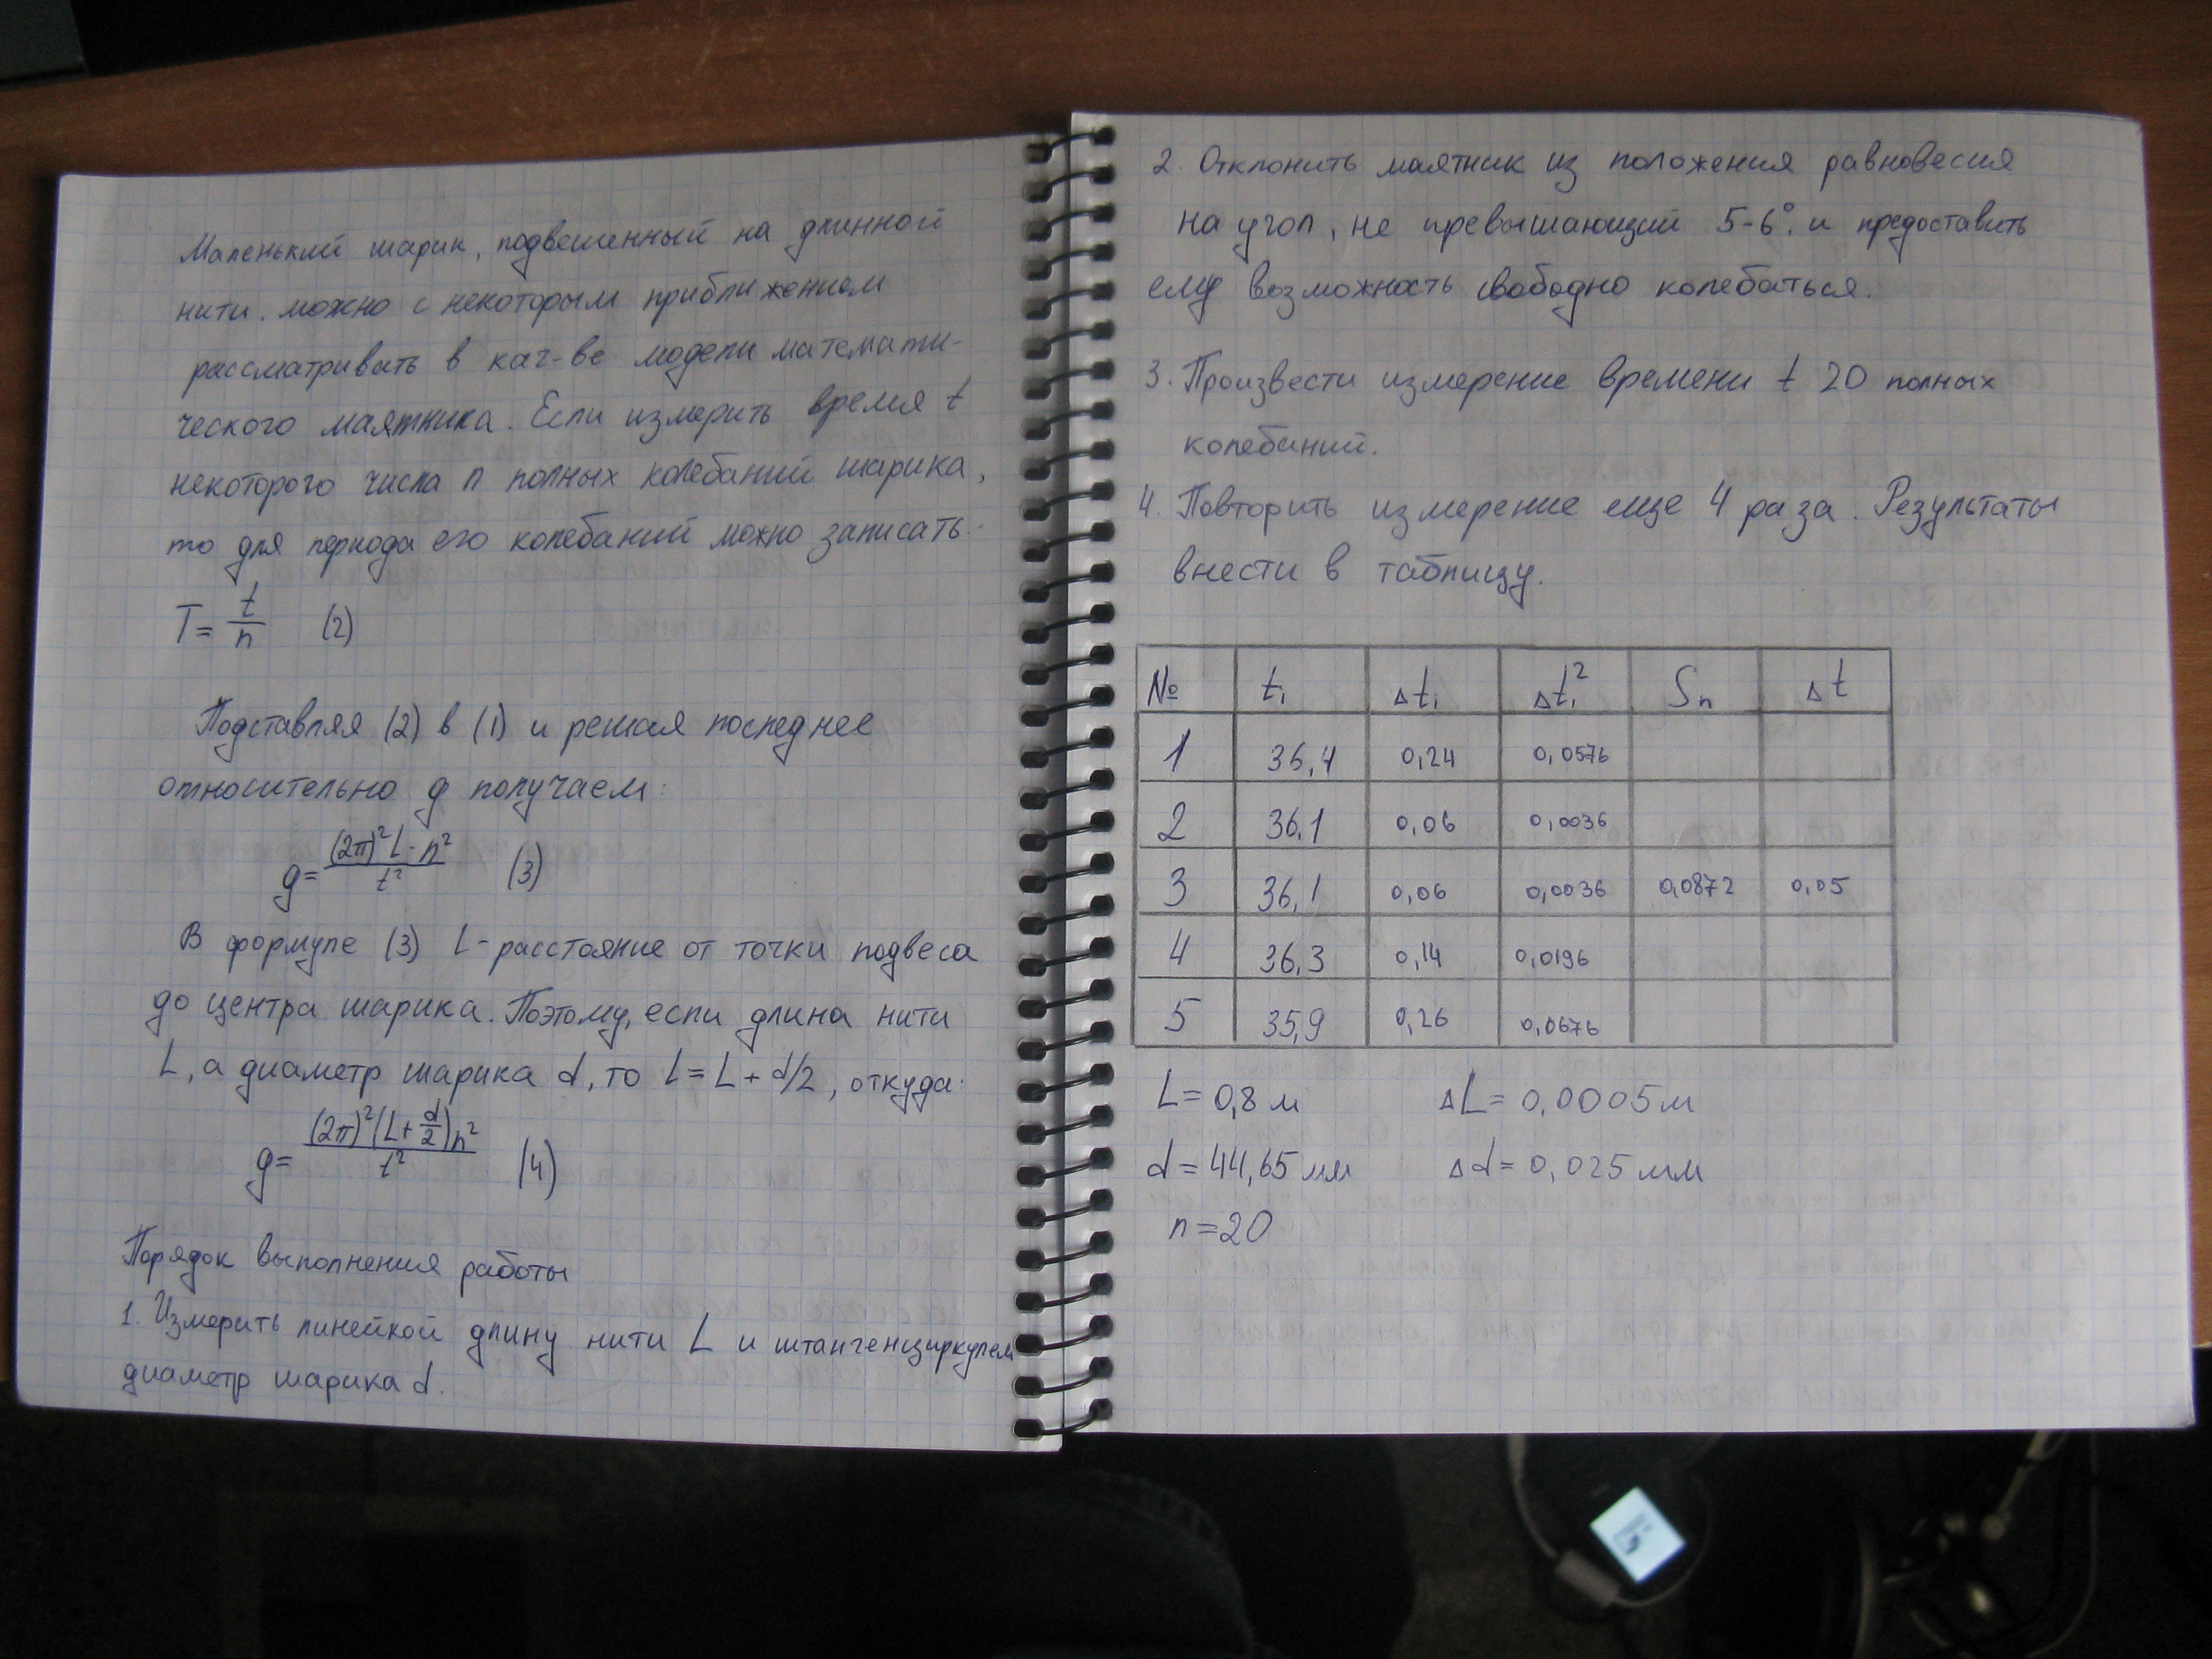 Маленький шарик, подвешенный на длинной
нити, можно с некоторым приближением
рассматривать в кач-ве модели математи-
ческого маятника. Если измерить время t
некоторого числа n полных колебаний шарика,
то для периода его колебаний можно записать:
T = t/n (2)
Подставляя (2) в (1) и решая последнее
относительно g получаем:
g = (2π)² l · n² / t² (3)
В формуле (3) l - расстояние от точки подвеса
до центра шарика. Поэтому, если длина нити
L, а диаметр шарика d, то l = L + d/2, откуда:
g = (2π)² (L + d/2) n² / t² (4)
Порядок выполнения работы
1. Измерить линейкой длину нити L и штангенциркулем
диаметр шарика d.
2. Отклонить маятник из положения равновесия
на угол, не превышающий 5-6°. и предоставить
ему возможность свободно колебаться.
3. Произвести измерение времени t 20 полных
колебаний.
4. Повторить измерение еще 4 раза. Результаты
внести в таблицу.
№ tᵢ Δtᵢ Δtᵢ² Sn Δt
1 36,4 0,24 0,0576
2 36,1 0,06 0,0036
3 36,1 0,06 0,0036 0,0872 0,05
4 36,3 0,14 0,0196
5 35,9 0,26 0,0676
L = 0,8 м ΔL = 0,0005 м
d = 44,65 мм Δd = 0,025 мм
n = 20